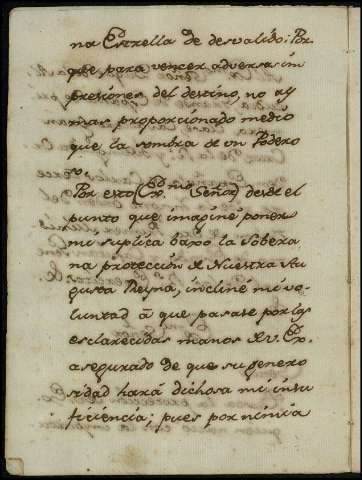 na Estrella de desvalido: Por-
que para vencer adversas im
presiones del destino, no ay
mas proporcionado medio
que la sombra de un Podero
so.
Por esto (Ex.mo Señor) desde el
punto que imaginé poner
mi suplica baxo la Sobera
na protección de Nuestra Au
gusta Reyna, incliné mi vo-
luntad á que pasase por las
esclarecidas manos de V. Ex.
asegurado de que su genero
sidad hará dichosa mi insu
ficiencia; pues por nimia